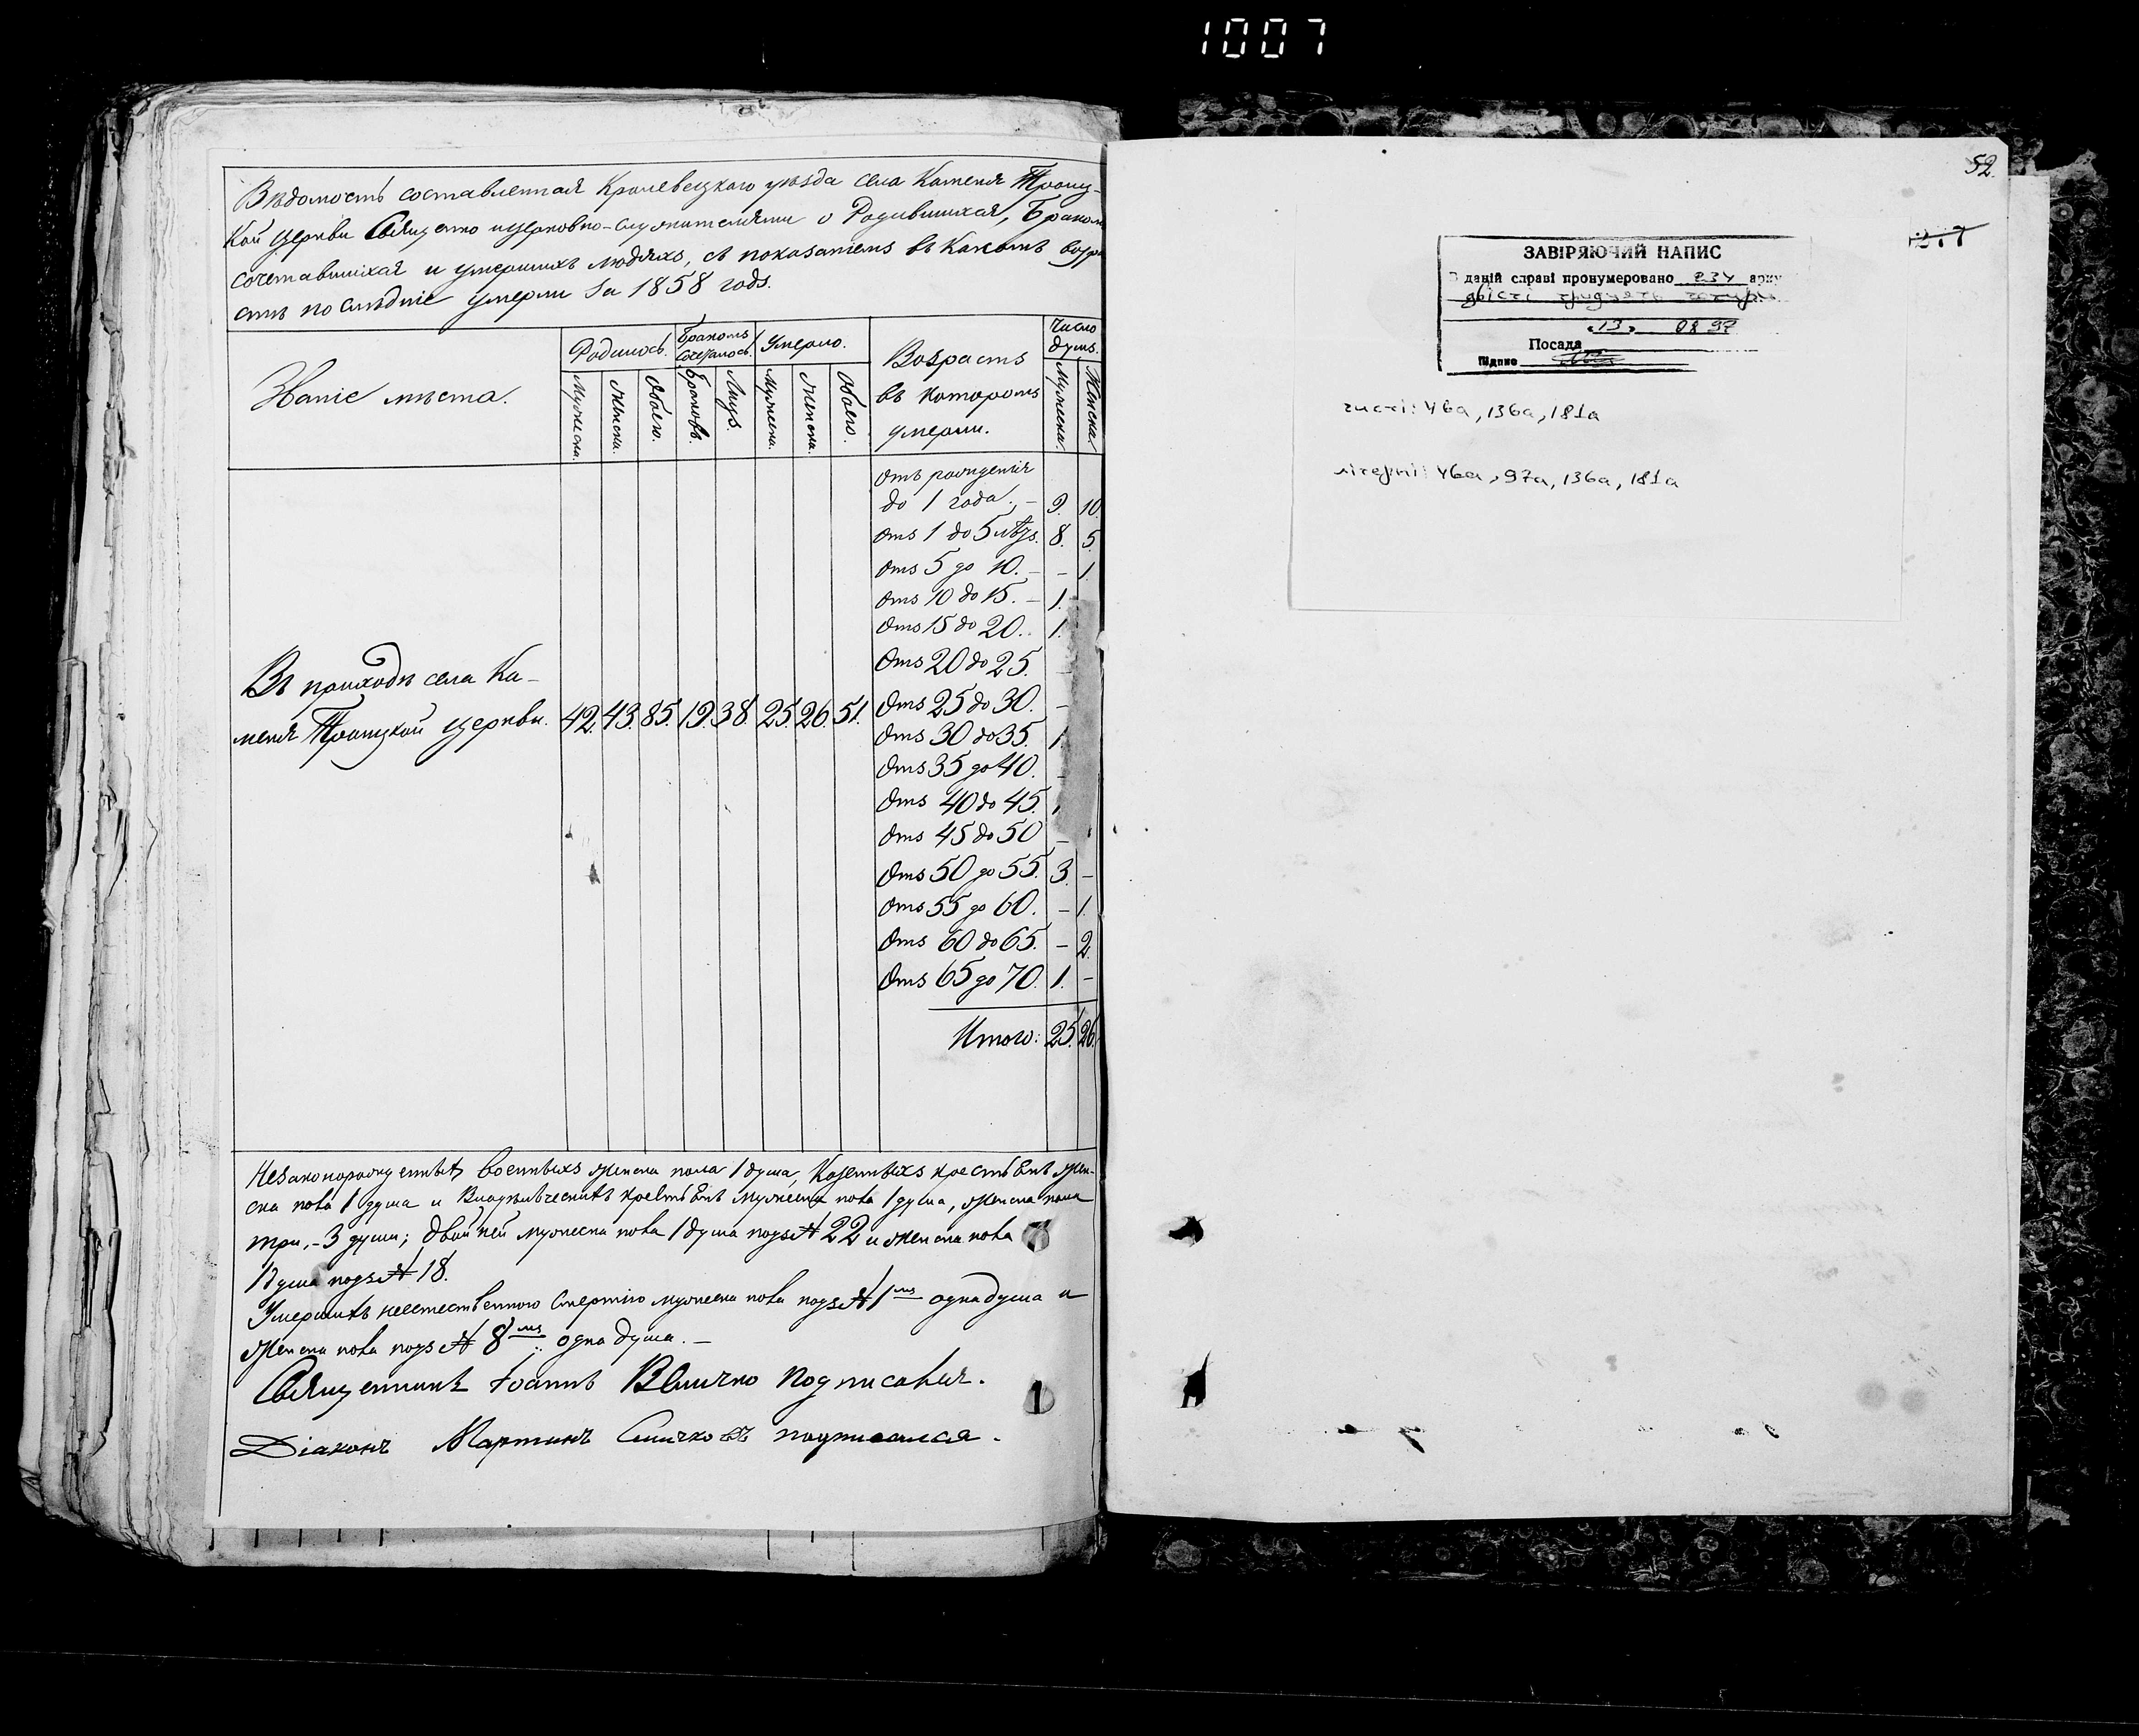 1007
Вѣдомость составленная Кролевецкаго уѣзда села Каменя Троиц-
кой Церкви Священно и церковно-служителями о Родившихся, Браком
сочетавшихся и умершихъ людяхъ, съ показаніемъ въ какомъ возра
стѣ послѣдніе умерли За 1858 годъ.
Званіе мѣста.
Родилось.
Бракомъ Сочеталось.
Умерло.
Возрастъ въ которомъ умерли.
Число душъ.
Мужеска. Женска. Обоего. Браковъ. Лицъ. Мужеска. Женска. Обоего. Мужеска. Женска.
Отъ рожденія
до 1 года. – 9. 10.
Отъ 1 до 5 лѣтъ. 8. 5.
Отъ 5 до 10. – – 1.
Отъ 10 до 15. – 1.
Отъ 15 до 20. 1.
Отъ 20 до 25. –
Отъ 25 до 30. –
Отъ 30 до 35. 1.
Отъ 35 до 40. –
Отъ 40 до 45. 1
Отъ 45 до 50 –
Отъ 50 до 55. 3. –
Отъ 55 до 60. – 1.
Отъ 60 до 65. – 2.
Отъ 65 до 70. 1. –
Итого: 25. 26.
Въ приходѣ села Ка-
меня Троицкой Церкви. 42. 43. 85. 19. 38. 25. 26. 51.
Незаконорожденныхъ военныхъ женска пола 1 душа, Казенныхъ крестьянъ жен-
ска пола 1 душа и Владѣльческихъ крестьянъ мужеска пола 1 душа, женска пола
три, – 3 души; двойней мужеска пола 1 душа подъ № 22 и женска пола
1 душа подъ № 18.
Умершихъ неестественною смертію мужеска пола подъ № 1мъ одна душа и
женска пола подъ № 8мъ одна душа. –
Священникъ Іоаннъ Величко подписался.
Діаконъ Мартинъ подписался.
52.
217
ЗАВІРЯЮЧИЙ НАПИС
В даній справі пронумеровано 234 арку
двісті тридцять чотири
"13" 08 97
Посада
Підпис
чисті: 46а, 136а, 181а
літерні: 46а, 97а, 136а, 181а